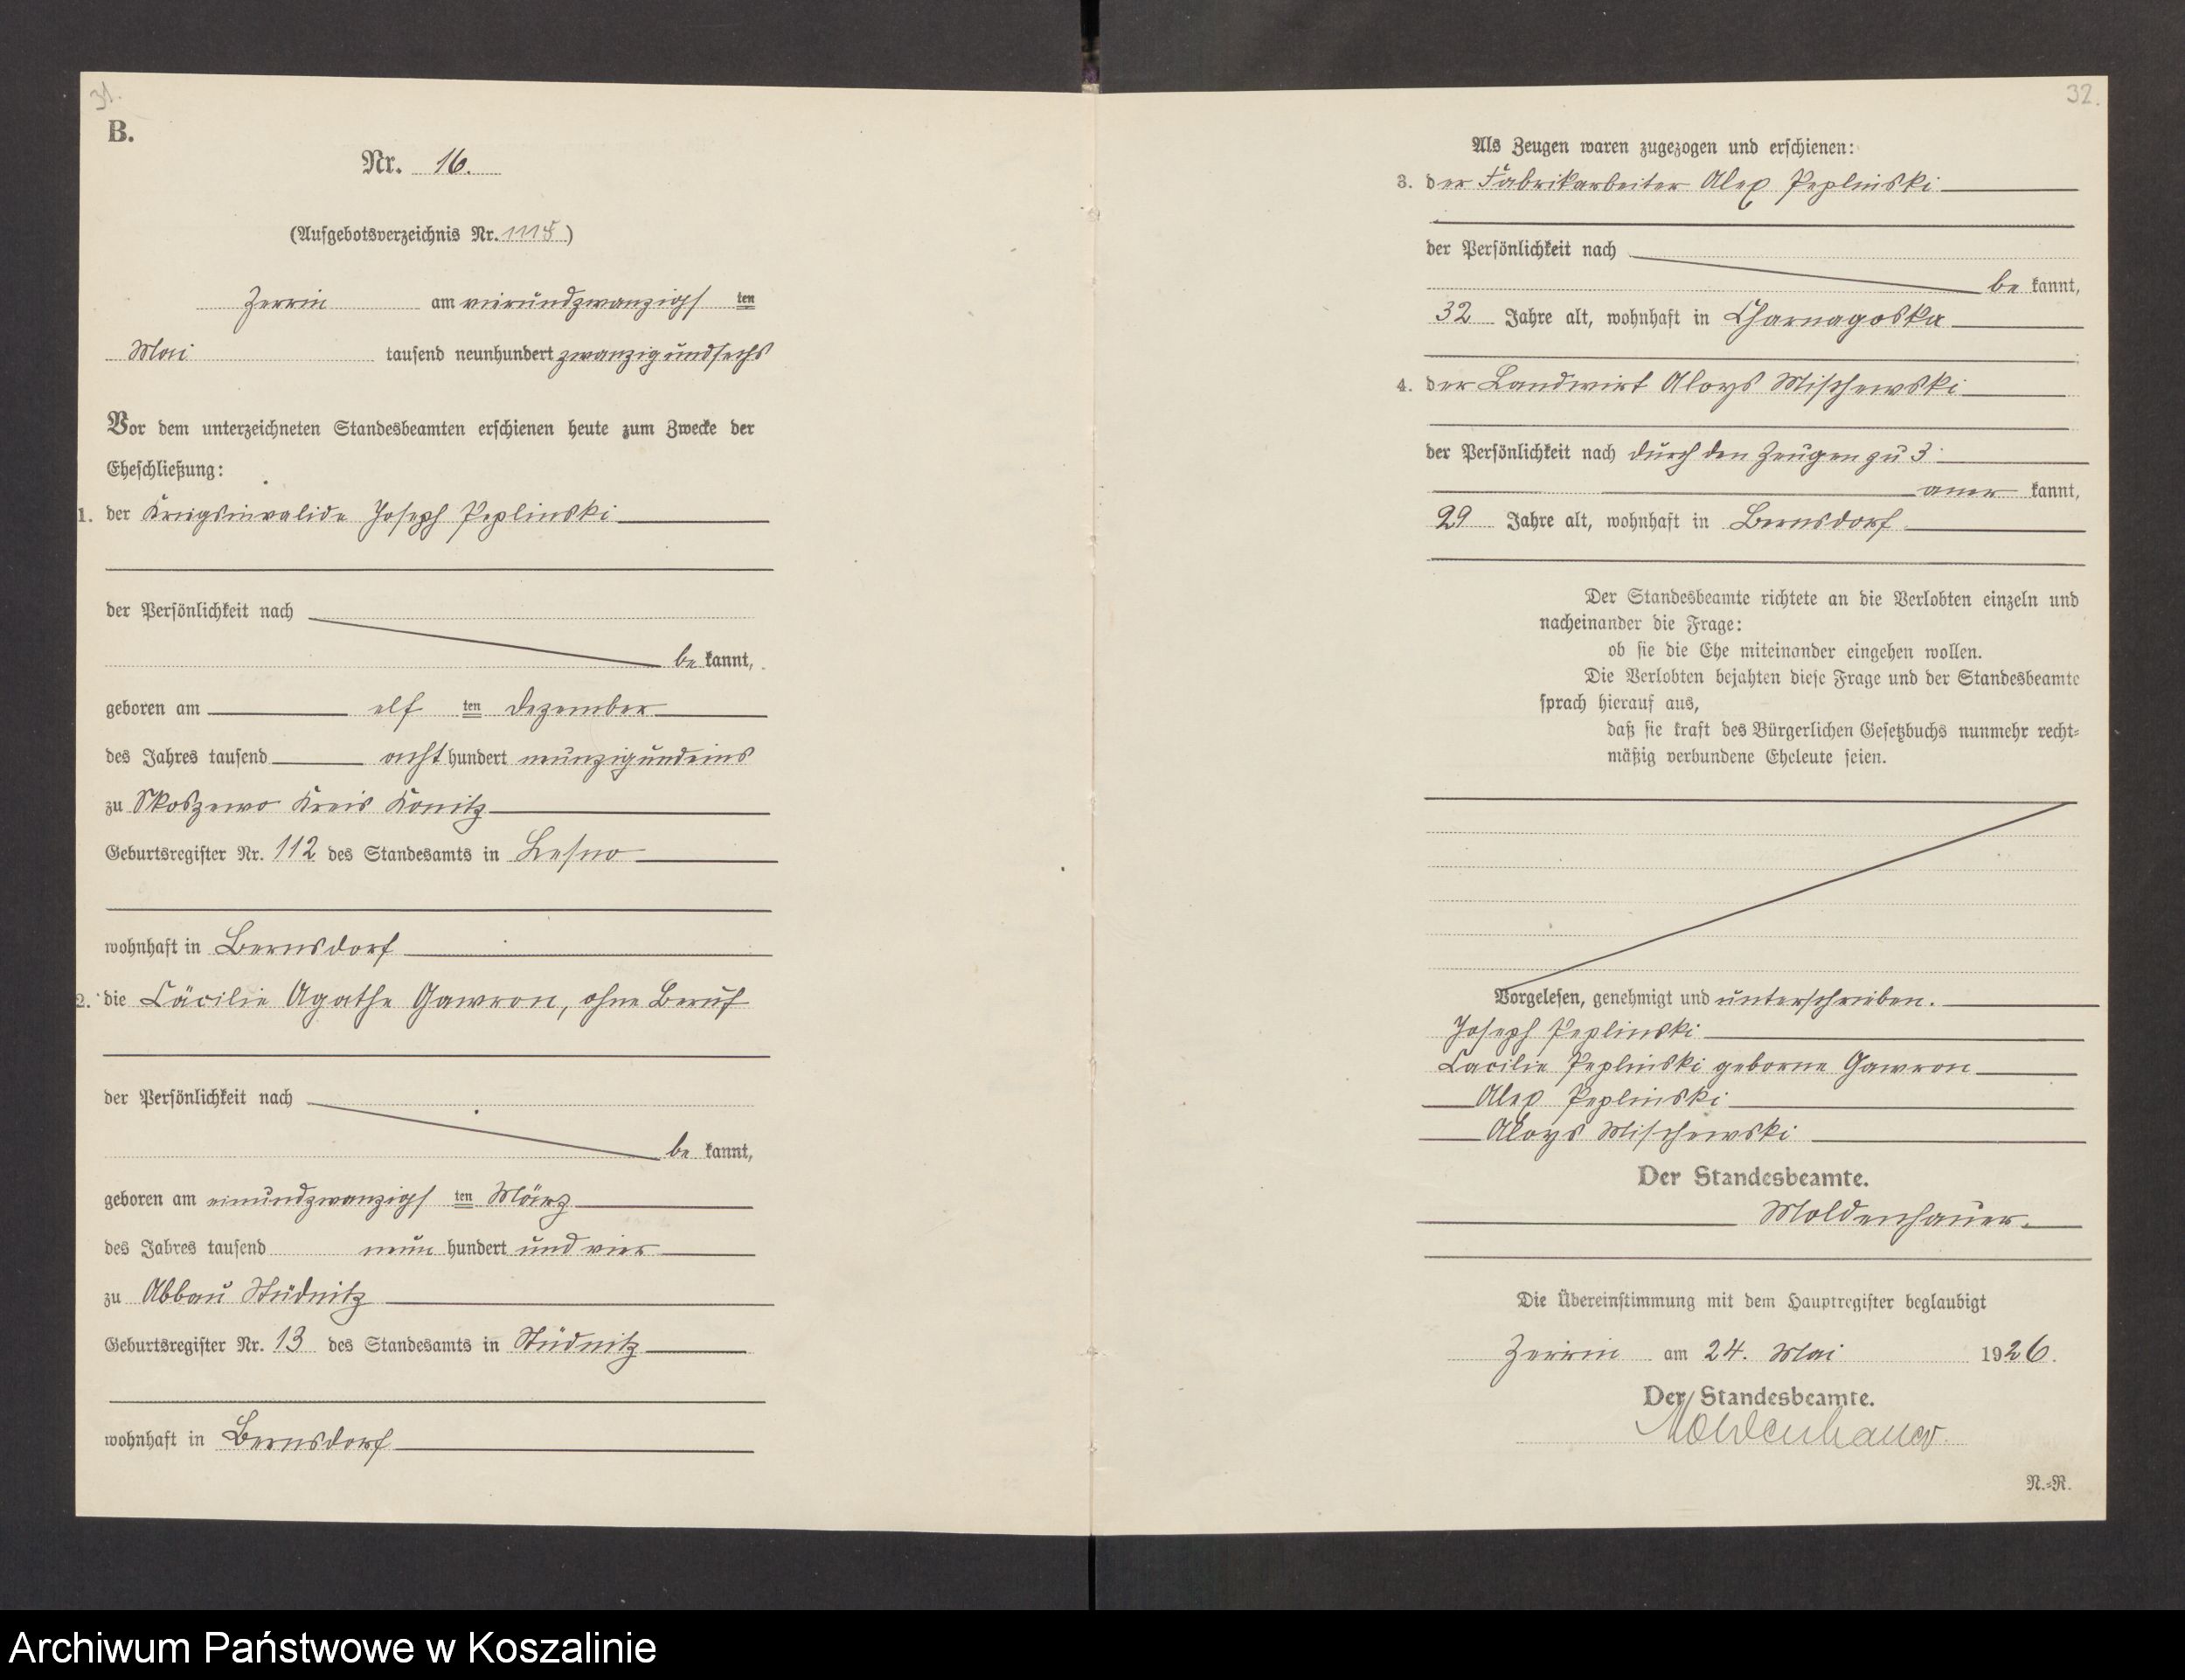 31.
B.
Nr. 16.
(Aufgebotsverzeichnis Nr. )
Zerrin am vierundzwanzigs ten
Mai tausend neunhundert zwanzig und sechs
Vor dem unterzeichneten Standesbeamten erschienen heute zum Zwecke der
Eheschließung:
1. der Kriegsinvalide Joseph Peplinski
der Persönlichkeit nach
be kannt,
geboren am elf ten Dezember
des Jahres tausend acht hundert neunzig und eins
zu Skoszewo Kreis Konitz
Geburtsregister Nr. 112 des Standesamts in Lesno
wohnhaft in Bernsdorf
2. die Cäcilie Agathe Gawron, ohne Beruf
der Persönlichkeit nach
be kannt,
geboren am einundzwanzigs ten März
des Jahres tausend neun hundert und vier
zu Abbau Stüdnitz
Geburtsregister Nr. 13 des Standesamts in Stüdnitz
wohnhaft in Bernsdorf
32.
Als Zeugen waren zugezogen und erschienen:
3. der Fabrikarbeiter Alex Peplinski
der Persönlichkeit nach
be kannt,
32 Jahre alt, wohnhaft in
4. der Landwirt Aloys Mischewski
der Persönlichkeit nach durch den Zeugen zu 3
aner kannt,
29 Jahre alt, wohnhaft in Bernsdorf
Der Standesbeamte richtete an die Verlobten einzeln und
nacheinander die Frage:
ob sie die Ehe miteinander eingehen wollen.
Die Verlobten bejahten diese Frage und der Standesbeamte
sprach hierauf aus,
daß sie kraft des Bürgerlichen Gesetzbuchs nunmehr recht-
mäßig verbundene Eheleute seien.
Vorgelesen, genehmigt und unterschrieben.
Joseph Peplinski
Cacilie Peplinski geborne Gawron
Alex Peplinski
Aloys Mischewski
Der Standesbeamte.
Moldenhauer.
Die Übereinstimmung mit dem Hauptregister beglaubigt
Zerrin am 24. Mai 1926.
Der Standesbeamte.
Moldenhauer
N.-R.
Archiwum Państwowe w Koszalinie